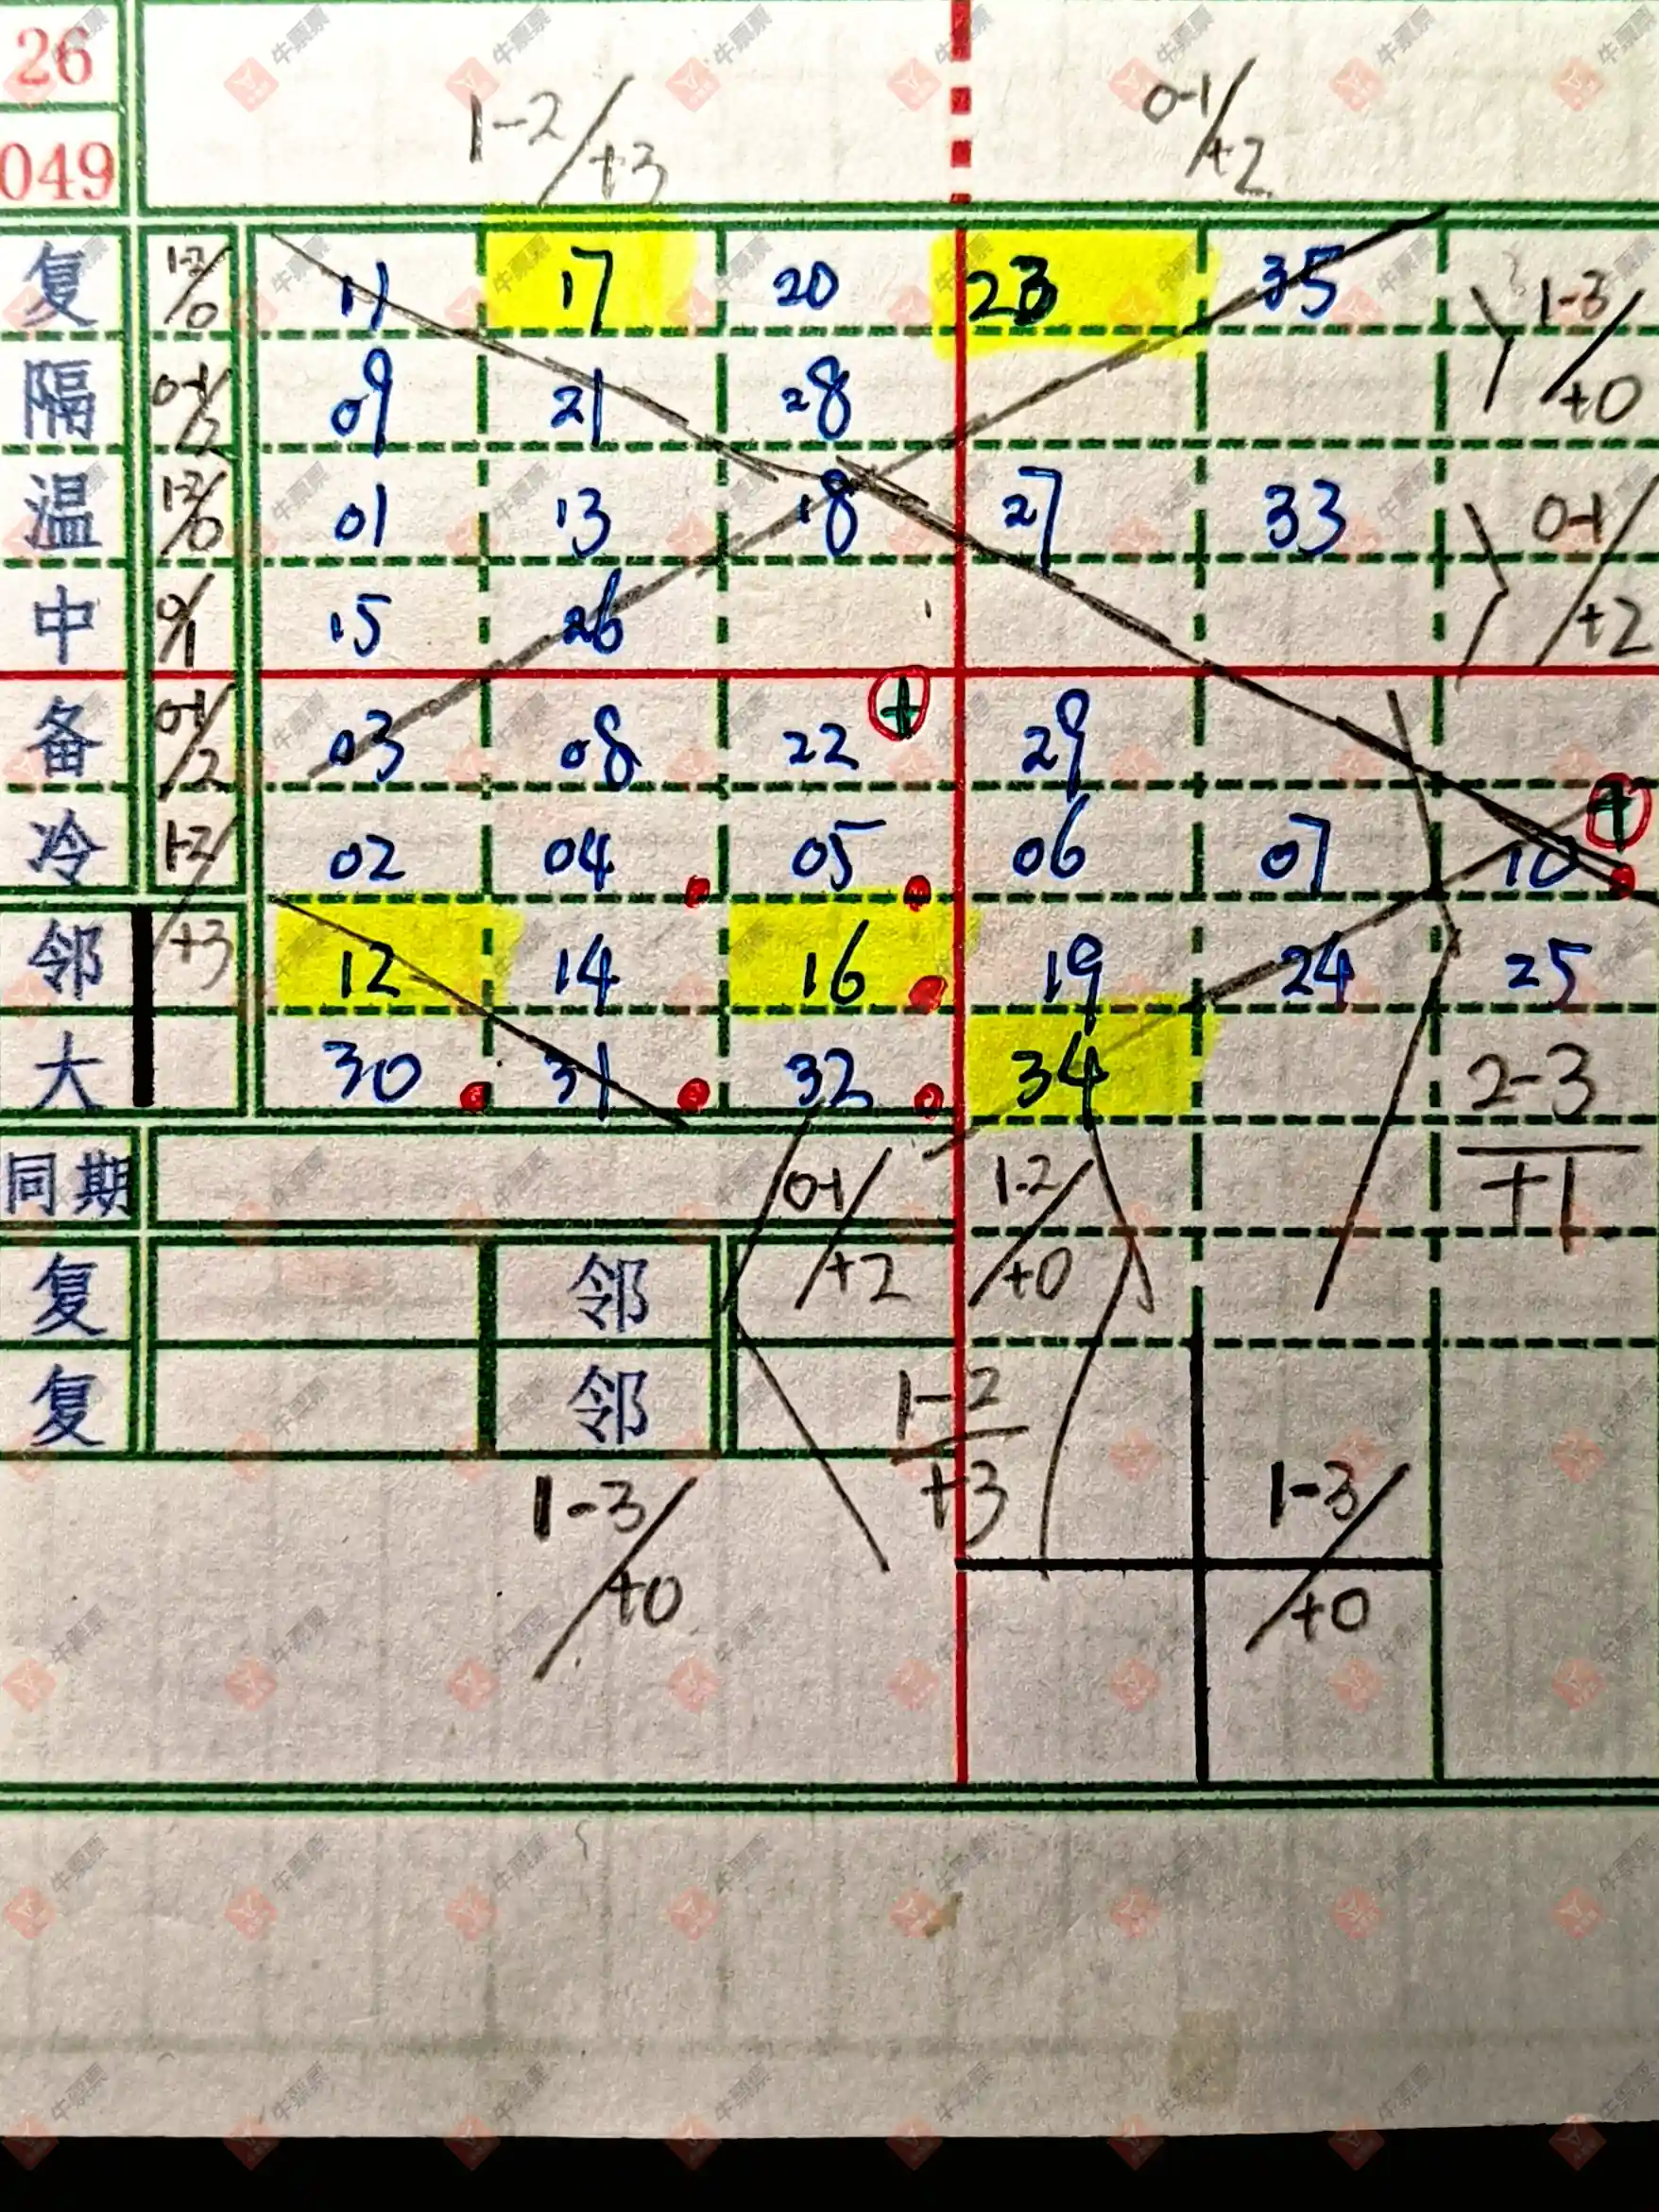 26
1-2/+3 0-1/+2
049
复 1-2/0 11 17 20 23 35 1-3/+0
隔 0-1/2 09 21 28
温 1-2/0 01 13 18 27 33 0-1/+2
中 0/1 15 26
备 0-1/2 03 08 22 + 29
冷 1-2/+3 02 04 05 06 07 10 +
邻 12 14 16 19 24 25
大 30 31 32 34 2-3/+1
同期 0-1/+2 1-2/+0
复 邻
复 邻 1-2/+3
1-3/+0 1-3/+0
牛票票